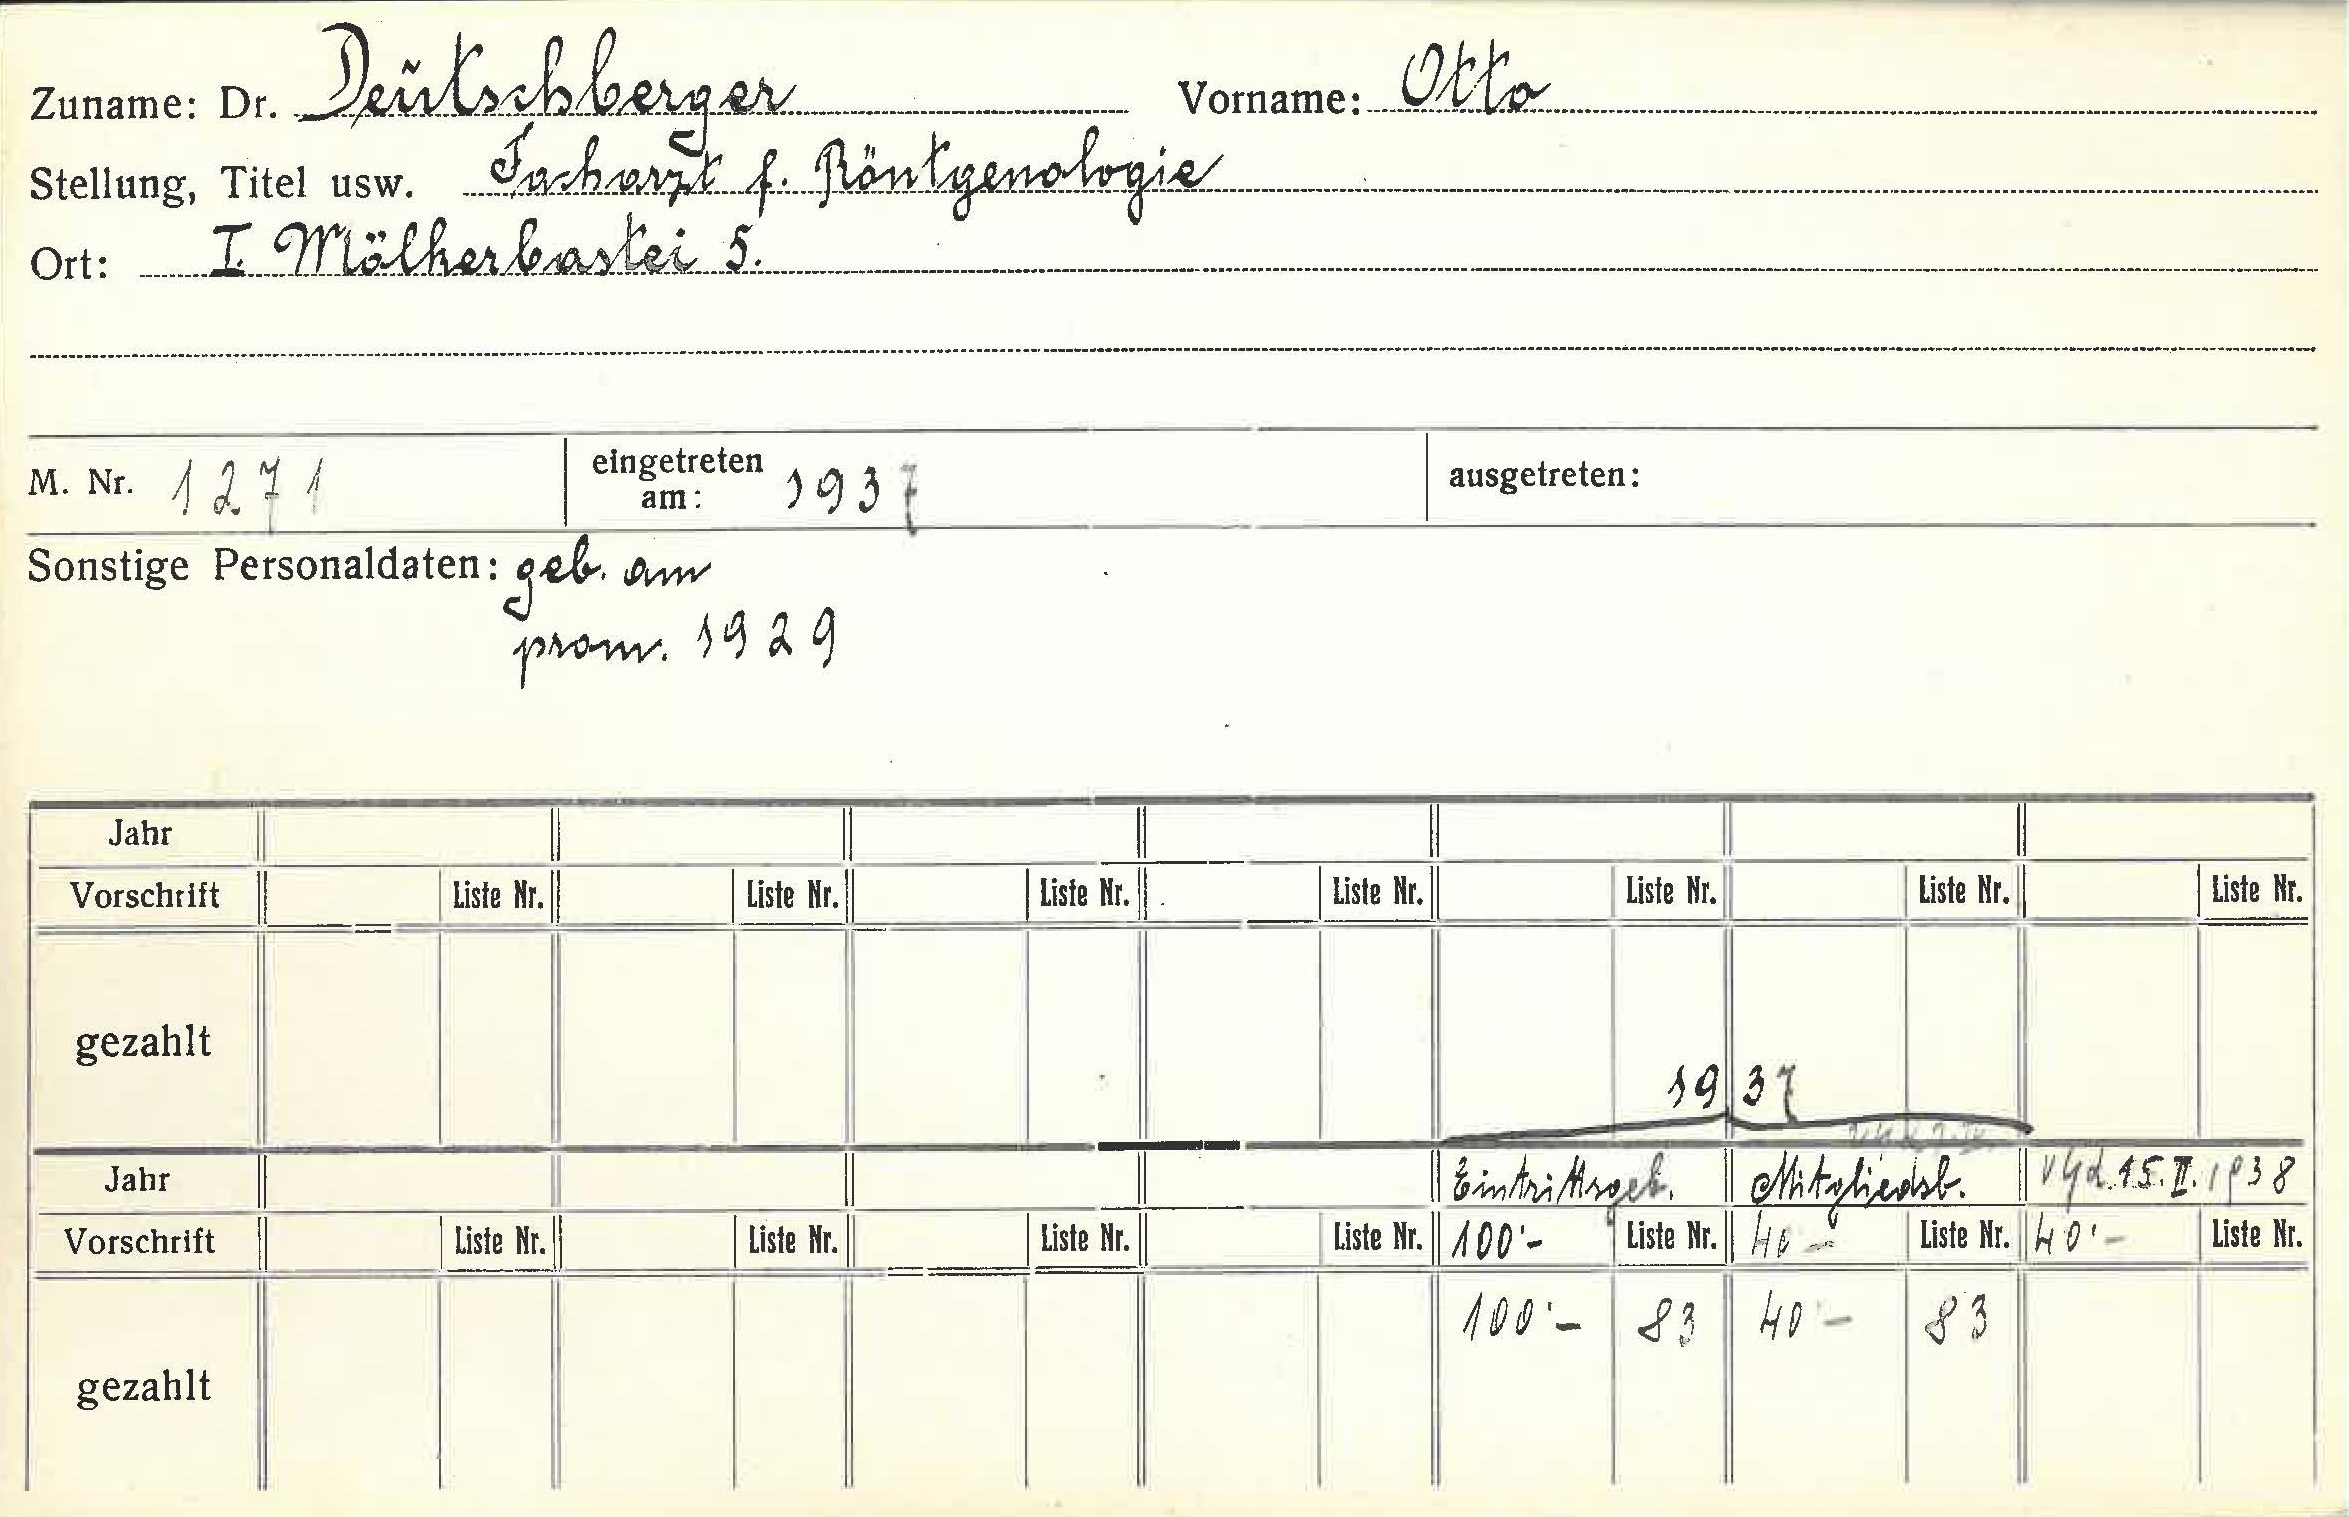 Zuname: Dr. Deutschberger Vorname: Otto
Stellung, Titel usw. Facharzt f. Röntgenologie
Ort: I. Mölkerbastei 5.
M. Nr. 1271 eingetreten am: 1937 ausgetreten:
Sonstige Personaldaten: geb. am
prom. 1929
Jahr
Vorschrift Liste Nr. Liste Nr. Liste Nr. Liste Nr. Liste Nr. Liste Nr. Liste Nr.
gezahlt
1937
Jahr Eintrittsgeb. Mitgliedsb. 15. II. 1938
Vorschrift Liste Nr. Liste Nr. Liste Nr. Liste Nr. 100'- Liste Nr. 40 - Liste Nr. 40'- Liste Nr.
100'- 83 40 - 83
gezahlt